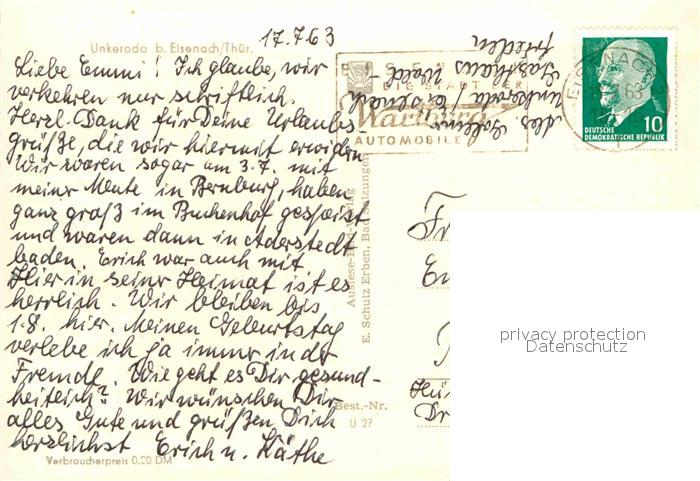 Unkeroda b. Eisenach/Thür.
17.7.63
Liebe Emmi! Ich glaube, wir
verkehren nur schriftlich.
Herzl. Dank für Deine Urlaubs-
grüße, die wir hiermit erwidern.
Wir waren sogar am 3.7. mit
meiner Meute in Bernburg, haben
ganz groß im Buchenhof gespeist
und waren dann in Aderstedt
baden. Erich war auch mit
Hier in seiner Heimat ist es
herrlich. Wir bleiben bis
1.8. hier. Meinen Geburtstag
verlebe ich ja immer in der
Fremde. Wie geht es Dir gesund-
heitlich? Wir wünschen Dir
alles Gute und grüßen Dich
herzlichst Erich u. Käthe
Verbraucherpreis 0.20 DM
Unkeroda / Eisenach
Gasthaus Wald-
frieden
DIE STADT DER
Wartburg
AUTOMOBILE
EISENACH
63
DEUTSCHE
DEMOKRATISCHE REPUBLIK
10
Auslese-Bild-Verlag
E. Schulz Erben, Bad Salzungen
Best.-Nr.
U 27
privacy protection
Datenschutz